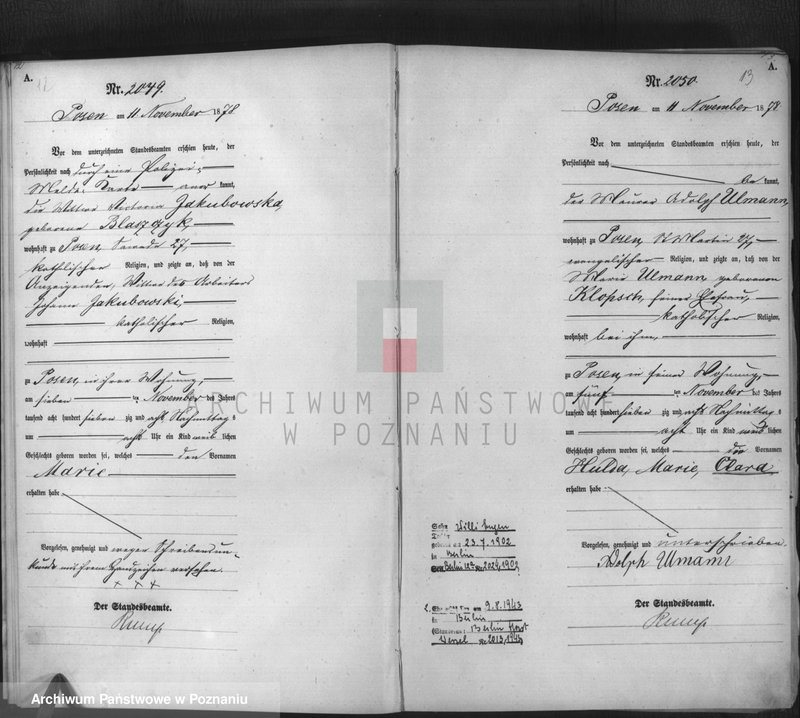 A.
12
Nr. 2049.
Posen am 11 November 1878
Vor dem unterzeichneten Standesbeamten erschien heute, der
Persönlichkeit nach durch eine Polizei-
Melde Karte aner kannt,
die Wittwe Victoria Jakubowska,
geborene Blaszczyk,
wohnhaft zu Posen, 27,
katholischer Religion, und zeigte an, daß von der
Anzeigenden, Wittwe des Arbeiters
Johann Jakubowski,
katholischer Religion,
wohnhaft
zu Posen, in ihrer Wohnung,
am sieben ten November des Jahres
tausend acht hundert sieben zig und acht Nachmittags
um acht Uhr ein Kind weib lichen
Geschlechts geboren worden sei, welches den Vornamen
Marie
erhalten habe
Vorgelesen, genehmigt und wegen Schreibensun-
kunde mit ihrem Handzeichen versehen.
x x x
Der Standesbeamte.
13
A.
Nr. 2050.
Posen am 11 November 1878
Vor dem unterzeichneten Standesbeamten erschien heute, der
Persönlichkeit nach
be kannt,
der Maurer Adolph Ulmann,
wohnhaft zu Posen, St Martin
evangelischer Religion, und zeigte an, daß von der
Marie Ulmann geborenen
Klopsch, seiner Ehefrau,
katholischer Religion,
wohnhaft bei ihm,
zu Posen, in seiner Wohnung,
am fünf ten November des Jahres
tausend acht hundert sieben zig und acht Nachmittags
um acht Uhr ein Kind weib lichen
Geschlechts geboren worden sei, welches die Vornamen
Hulda, Marie, Clara
erhalten habe
Vorgelesen, genehmigt und unterschrieben
Adolph Ulmann
Der Standesbeamte.
Willi Eugen
geboren am 23.7.1902
in Berlin
2. am 9.8.1943
in Berlin
Berlin Horst
Wessel
ARCHIWUM PAŃSTWOWE
W POZNANIU
Archiwum Państwowe w Poznaniu